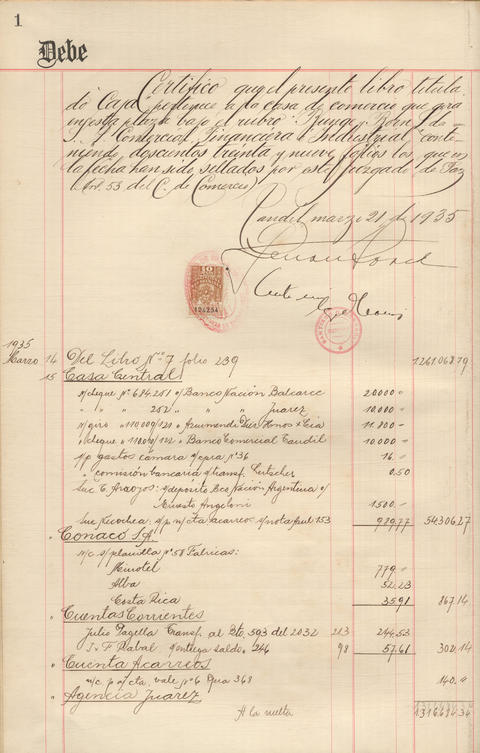 1
Debe
Certifico que el presente libro titula-
do Caja pertenece a la casa de comercio que gira
en esta plaza bajo el rubro "Bunge y Born Lda
S. A. Comercial, Financiera e Industrial" conte-
niendo doscientos treinta y nueve folios los que en
la fecha han sido sellados por este Juzgado de Paz
(Art. 53 del C. de Comercio)
Tandil marzo 21 de 1935
10
124254
1935
Marzo 14 Del Libro Nº 7 folio 239 1261.068.79
15 Casa Central
n/cheque Nº 684.251 c/Banco Nación Balcarce 20000 "
" " " 252 " " " Juarez 10.000 "
n/giro 11.000 "
" cheque Banco Comercial Tandil 10.000 "
s/p gastos cámara Nº 36 16. "
" comisión bancaria s/transf. 0.50
Suc. C. Araojos: s/depósito Bco Nación Argentina o/
Ernesto Angeloni 1500. "
Suc. Necochea: s/p n/cta acarreos s/nota 153 54306.27
" Conaco S.A.
n/c. s/planilla Nº 58 Fabricas:
Minotel 779. "
Alba 52.23
Costa Rica 35.91 867.14
" Cuentas Corrientes
Julio Pagella Transf. al Dto. 503 del 2032 213 244.53
J. F. Rabal s/entrega saldo 246 98 57.61 302.14
" Cuenta Acarreos
n/c. p n/cta. vale Nº 6 368 140. "
" Agencia Juarez
A la vuelta 1316.684.34